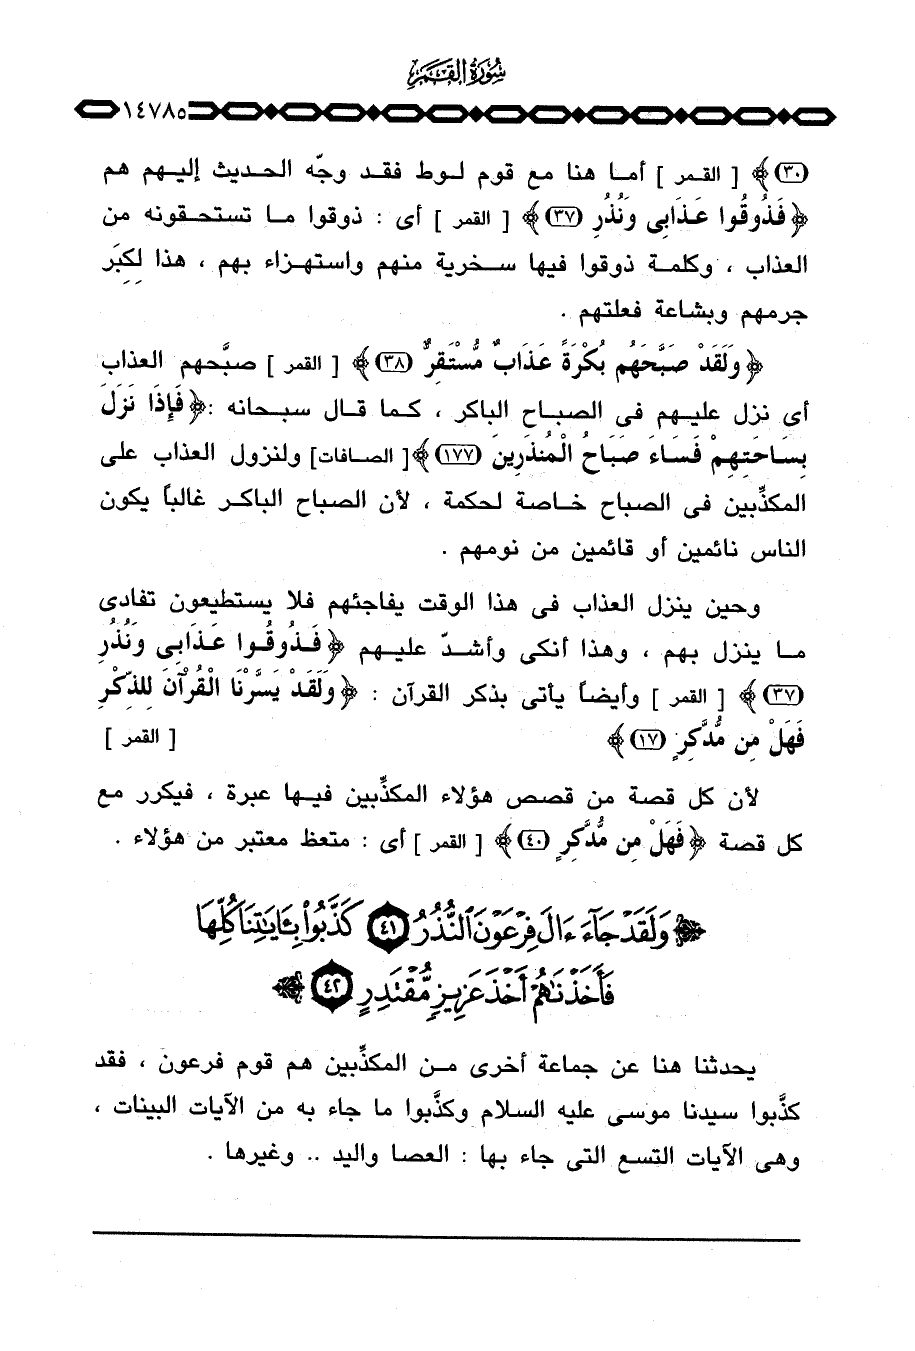 سُورَةُ القَمَرِ
١٤٧٨٥
(٣٠)﴾ [ القمر ] أما هنا مع قوم لوط فقد وجّه الحديث إليهم هم
﴿فَذُوقُوا عَذَابِى وَنُذُرِ (٣٧)﴾ [ القمر ] أى : ذوقوا ما تستحقونه من
العذاب ، وكلمة ذوقوا فيها سخرية منهم واستهزاء بهم ، هذا لكِبَر
جرمهم وبشاعة فعلتهم .
﴿وَلَقَدْ صَبَّحَهُم بُكْرَةً عَذَابٌ مُّسْتَقِرٌّ (٣٨)﴾ [ القمر ] صبَّحهم العذاب
أى نزل عليهم فى الصباح الباكر ، كما قال سبحانه :﴿فَإِذَا نَزَلَ
بِسَاحَتِهِمْ فَسَاءَ صَبَاحُ الْمُنذَرِينَ (١٧٧)﴾[ الصافات] ولنزول العذاب على
المكذِّبين فى الصباح خاصة لحكمة ، لأن الصباح الباكر غالباً يكون
الناس نائمين أو قائمين من نومهم .
وحين ينزل العذاب فى هذا الوقت يفاجئهم فلا يستطيعون تفادى
ما ينزل بهم ، وهذا أنكى وأشدّ عليهم ﴿فَذُوقُوا عَذَابِى وَنُذُرِ
(٣٧)﴾ [ القمر ] وأيضاً يأتى بذكر القرآن : ﴿وَلَقَدْ يَسَّرْنَا الْقُرْآنَ لِلذِّكْرِ
فَهَلْ مِن مُّدَّكِرٍ (١٧)﴾ [ القمر ]
لأن كل قصة من قصص هؤلاء المكذِّبين فيها عبرة ، فيكرر مع
كل قصة ﴿فَهَلْ مِن مُّدَّكِرٍ (٤٠)﴾ [ القمر ] أى : متعظ معتبر من هؤلاء .
﴿وَلَقَدْ جَآءَ ءَالَ فِرْعَوْنَ ٱلنُّذُرُ (٤١) كَذَّبُوا۟ بِـَٔايَـٰتِنَا كُلِّهَا
فَأَخَذْنَـٰهُمْ أَخْذَ عَزِيزٍ مُّقْتَدِرٍ (٤٢)﴾
يحدثنا هنا عن جماعة أخرى من المكذِّبين هم قوم فرعون ، فقد
كذَّبوا سيدنا موسى عليه السلام وكذَّبوا ما جاء به من الآيات البينات ،
وهى الآيات التسع التى جاء بها : العصا واليد .. وغيرها .